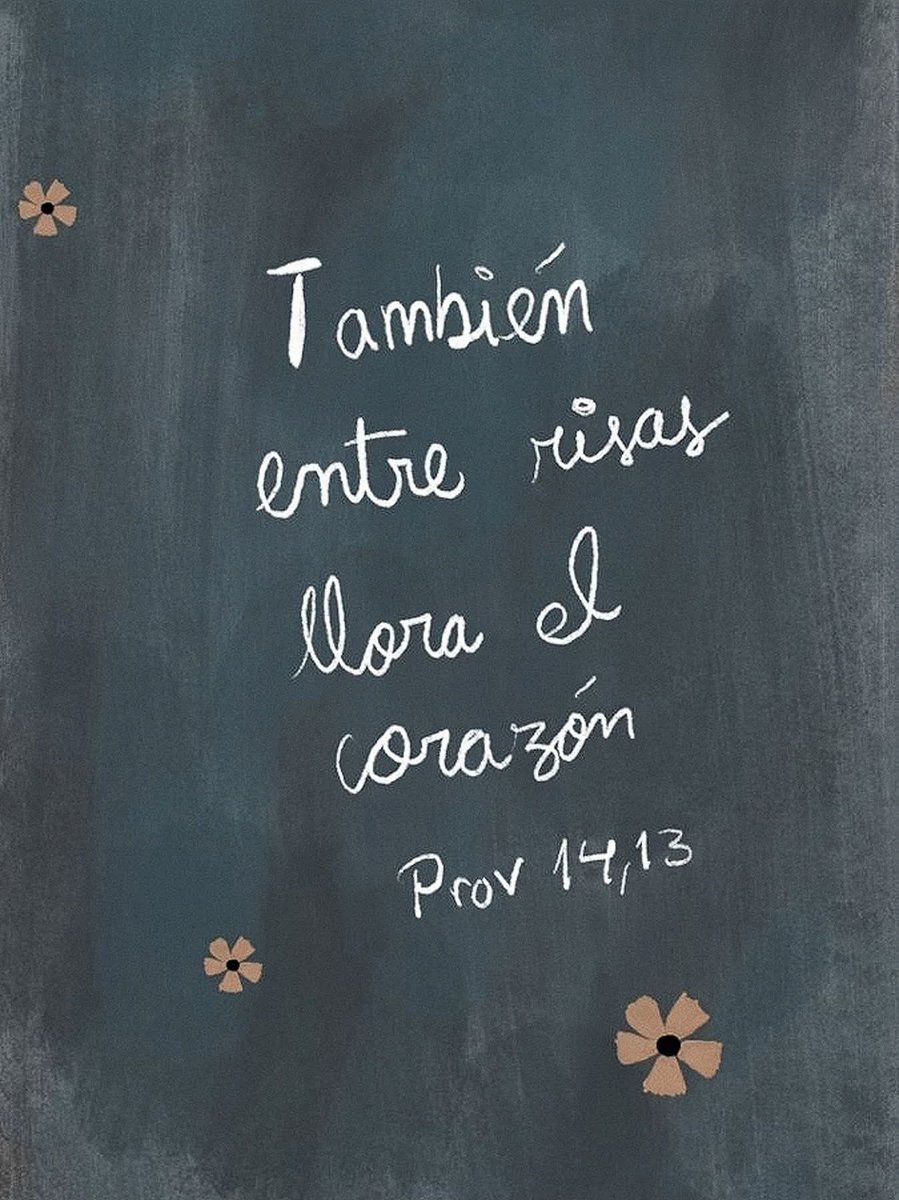 También
entre risas
llora el
corazón
Prov 14,13